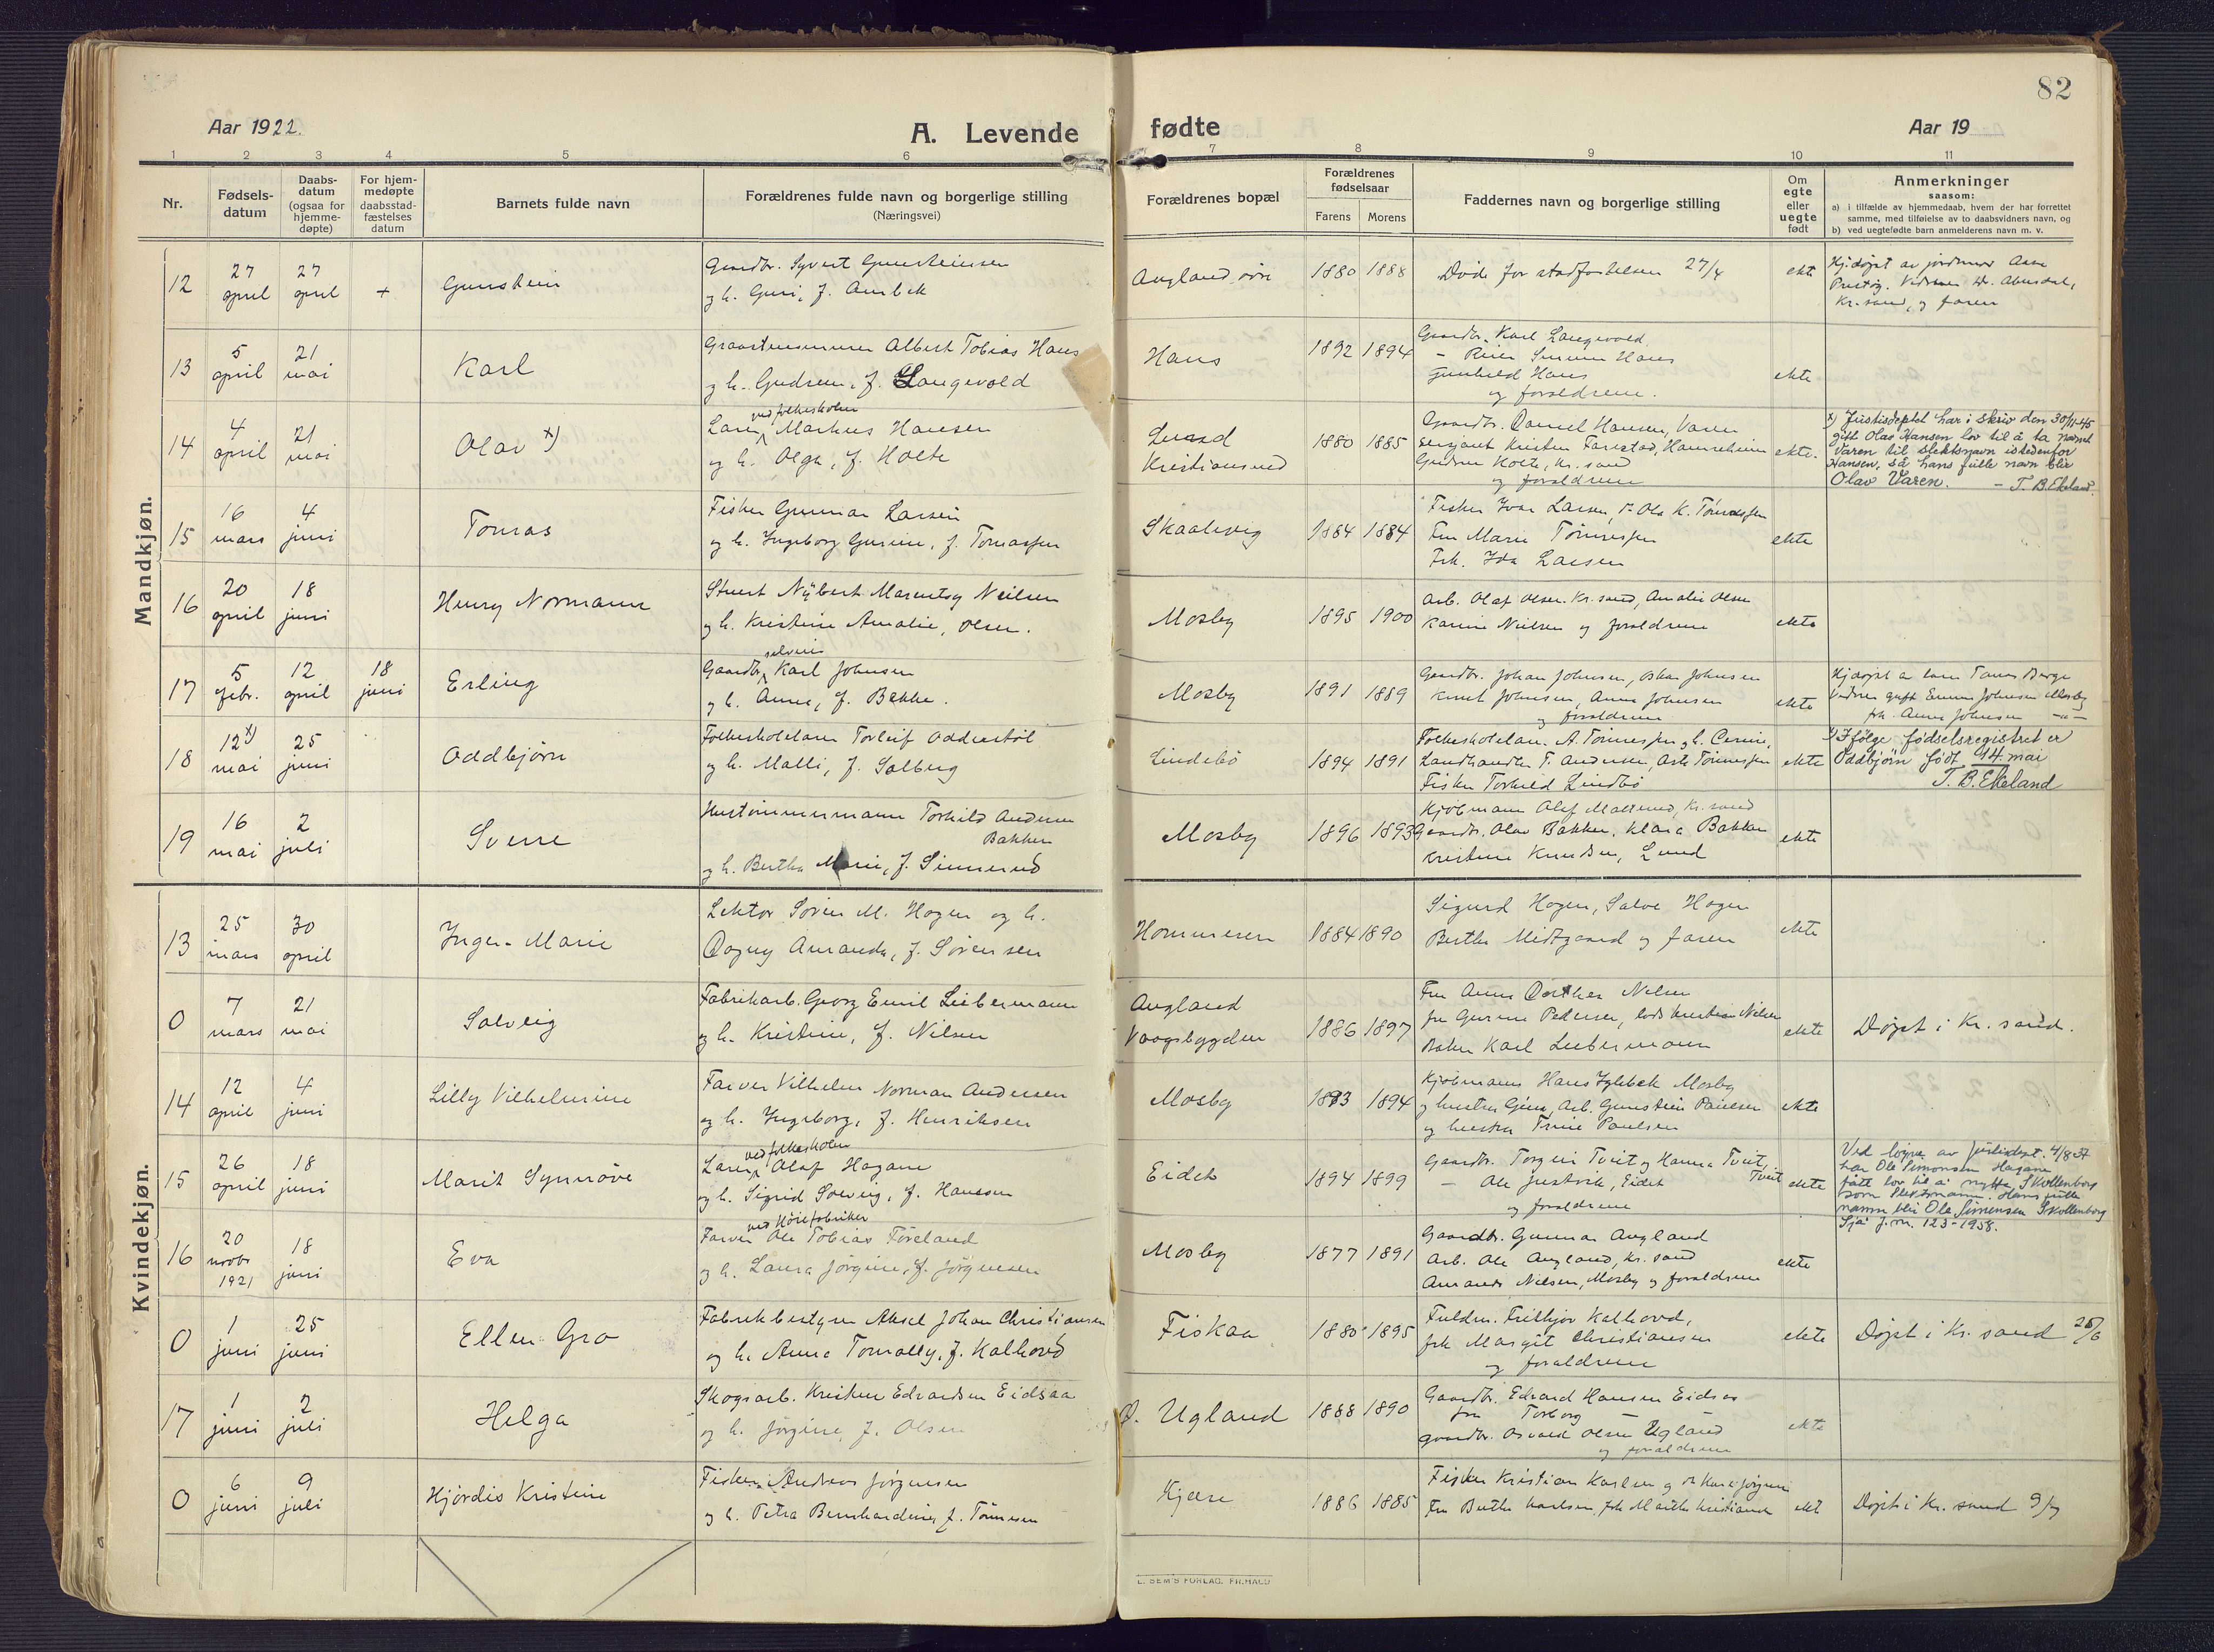 82
Aar 1922.
A. Levende fødte
Aar 19
1 2 3 4 5 6 7 8 9 10 11
Nr.
Fødsels-
datum
Daabs-
datum
(ogsaa for
hjemme-
døpte)
For hjem-
medøpte
daabsstad-
fæstelses
datum
Barnets fulde navn
Forældrenes fulde navn og borgerlige stilling
(Næringsvei)
Forældrenes bopæl
Forældrenes
fødselsaar
Farens Morens
Faddernes navn og borgerlige stilling
Om
egte
eller
uegte
født
Anmerkninger
saasom:
a) i tilfælde av hjemmedaab, hvem der har forrettet
samme, med tilføielse av to daabsvidners navn, og
b) ved uegtefødte barn anmelderens navn m. v.
Mandkjøn.
12
27
april
27
april
+
Gunstein
Gaardbr. Syvert Gunsteinsen
og h. Guri, f. Aurbek
Augland, øvre
1880 1888
Døde før stadfæstelsen 27/4
ekte
Hj.døpt av jordmor
Kr.sand, og faren
13
5
april
21
mai
Karl
Albert Tobias Haus
og h. Gudrun, f. Langevold
Haus
1892 1894
Gaardbr. Karl Langevold
Gunhild Haus
og foreldrene.
ekte
14
4
april
21
mai
Olav x)
ved folkeskolen
Lærer Markus Hansen
og h. Olga, f. Holte
Lund
Kristiansand
1880 1885
Gaardbr. Daniel Hansen, Varen
Sersjant Kristen
Gudrun Holte, Kr. sand
og foreldrene
ekte.
x) Justisdeptet har i skriv den 30/11-45
gitt Olav Hansen lov til å ta navnet
Varen til slektsnavn istedenfor
Hansen, så hans fulle navn blir
Olav Varen. – T. B. Ekeland.
15
16
mars
4
juni
Tomas
Fisker Gunnar Larsen
og h. Ingeborg Gurine, f. Tomassen
Skaalevig
1884 1884
Fisker Ivar Larsen, Ole K. Tønnessen
Fru Marie Tønnessen
Frk. Ida Larsen
ekte
16
20
april
18
juni
Henry Normann
Stuert Nilsen
og h. Kristine Amalie, Olsen.
Mosby
1895 1900
Arb. Olaf Olsen, Kr. sand, Amalie Olsen
Karine Nielsen og foreldrene
ekte
17
5
febr.
12
april
18
juni
Erling
selveier
Gaardbr. Karl Johnsen
og h. Anna, f. Bakke.
Mosby
1891 1889
Gaardbr. Johan Johnsen, Oskar Johnsen
Knut Johnsen, Anna Johnsen
og foreldrene
ekte
Hj.døpt av
Johnsen Mosby
frk. Anna Johnsen –"–
18
12 x)
mai
25
juni
Oddbjørn
Folkeskolelærer Torleif Odderstøl
og h. Malli, f. Solberg
Lindebø
1894 1891
Folkeskolelær. A. Tønnessen og h.
Landhandler T. Andersen, Tønnessen
Fisker Torkild Lindbø
ekte
x) Ifølge fødselsregistret er
Oddbjørn født 14. mai
T. B. Ekeland
19
16
mai
2
juli
Sverre
Hustømmermann Torkild Andersen
Bakken
og h. Bertha Marie, f. Sinnerud
Mosby
1896 1893
Kjøbmann Olaf Kr. sand
Gaardbr. Olav Bakken, Klara Bakken
Kristine Knudsen, Lund
ekte
Kvindekjøn.
13
25
mars
30
april
Inger-Marie
Lektor Søren M. Hagen og h.
Dagny Amanda, f. Sørensen
Hommeren
1884 1890
Sigurd Hagen, Salve Hagen
Berthe Midtgaard og faren
ekte
0
7
mars
21
mai
Solveig
Fabrikarb. Georg Emil Liebermann
og h. Kristine, f. Nilsen
Augland
Vaagsbygden
1886 1897
Fru Anna Dorthea Nilsen
fru Gurine Pedersen, Nilsen
Karl Liebermann
ekte
Døpt i Kr. sand.
14
12
april
4
juni
Lilly Vilhelmine
Farver Vilhelm Norman Andersen
og h. Ingeborg, f. Henriksen
Mosby
1893 1894
Kjøbmann Hans Iglebæk Mosby
og hustru Arb. Gunstein Paulsen
og hustru Trine Paulsen
ekte
15
26
april
18
juni
Marit Synnøve
ved folkeskolen
Lærer Olaf Hagane
og h. Sigrid Solveig, f. Hansen
Eidet
1894 1899
Gaardbr. Torgeir Tveit og Hanna Tveit,
– Ole Justvik, Eidet Tveit
og foreldrene
ekte
Ved av justisdept. 4/8 37
har Ole Simonsen Hagane
fått lov til å nytte Skollenborg
som slektsnavn. Hans fulle
namn blir Ole Simonsen Skollenborg
Sjå j.nr. 123-1938.
16
20
novbr
1921
18
juni
Eva
ved Høiefabriker
Farver Ole Tobias Føreland
og h. Laura Jørgine, f. Jørgensen
Mosby
1877 1891
Gaardbr. Gunnar Augland
Arb. Ole Augland, Kr. sand
Amanda Nilsen, Mosby og foreldrene
ekte
0
1
juni
25
juni
Ellen Gro
Fabrikbestyrer Aksel Johan Christiansen
og h. Anna Tomally, f. Kalhovd
Fiskaa
1880 1895
Fuldm. Frithjov Kalhovd,
frk Margit Christiansen
og foreldrene
ekte
Døpt i Kr. sand 25/6
17
1
juni
2
juli
Helga
Skogsarb. Kristen Edvardsen Eidsaa
og h. Jørgine, f. Olsen
Ø. Ugland
1888 1890
Gaardbr. Edvard Hansen Eidsaa
fru Torborg –
gaardbr. Osvald Olsen Ugland
og foreldrene
ekte
0
6
juni
9
juli
Hjördis Kristine
Fisker Andreas Jörgensen
og h. Petra Bernhardine, f. Tönnesen
Kjære
1886 1885
Fisker Kristian Karlsen og
Fru Berthe Karlsen, frk Marthe Kristiansen
ekt
Døpt i Kr. sand 9/7
L. SEM'S FORLAG. FR.HALD